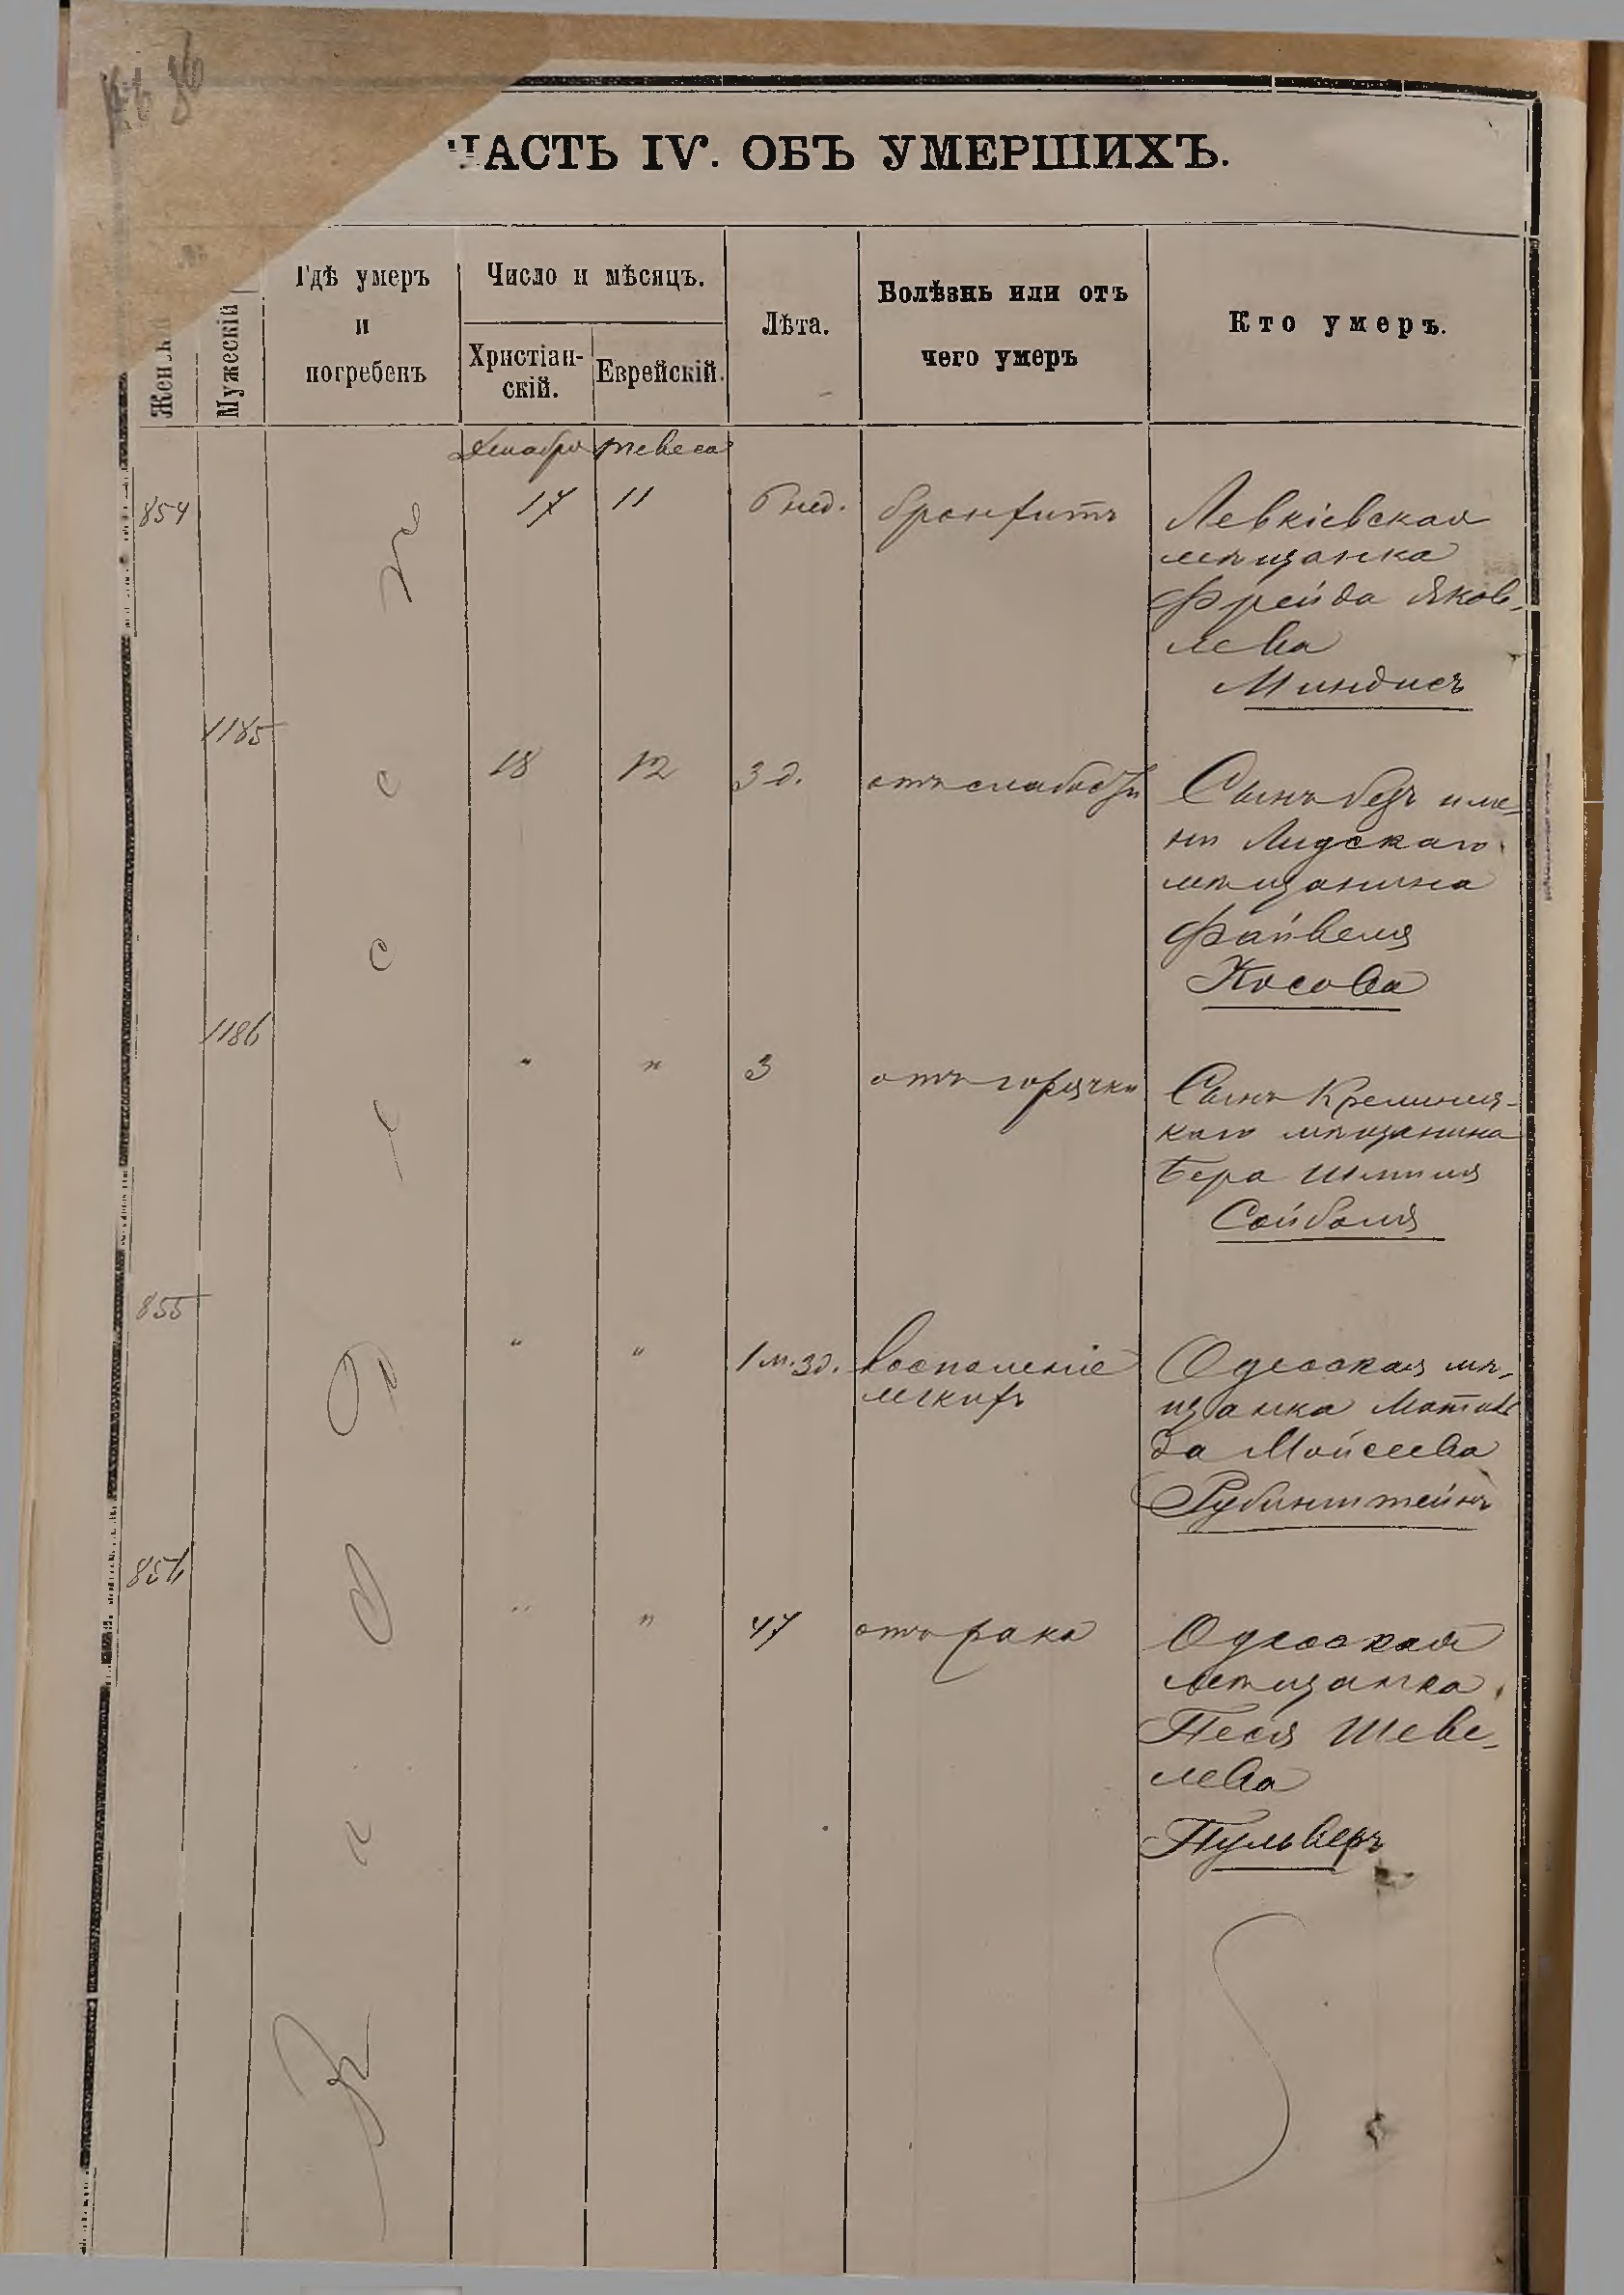 ЧАСТЬ IV. ОБЪ УМЕРШИХЪ.
Женскій
Мужескій
Гдѣ умеръ
и
погребенъ
Число и мѣсяцъ.
Христіан-
скій.
Еврейскій.
Лѣта.
Болѣзнь или отъ
чего умеръ
Кто умеръ.
Декабря Тевеса
854 17 11 6 нед. бронхитъ Левкіевская
мѣщанка
Фрейда Яков-
лева
Миндисъ
1185
18 12 3 д. отъ слабости Сынъ безъ име-
ни Лидскаго
мѣщанина
Файвеля
Косова
1186
" " 3 отъ горячки Сынъ Кременец-
каго мѣщанина
Бера Шмиля
Сойбеля
855
" " 1 м. 3 д. воспаленіе Одесская мѣ-
легкихъ щанка Матиль
да Мойсеева
Рубинштейнъ
856
" " 47 отъ рака Одесская
мѣщанка
Песя Шеве-
лева
Пульверъ
Въ Одессѣ